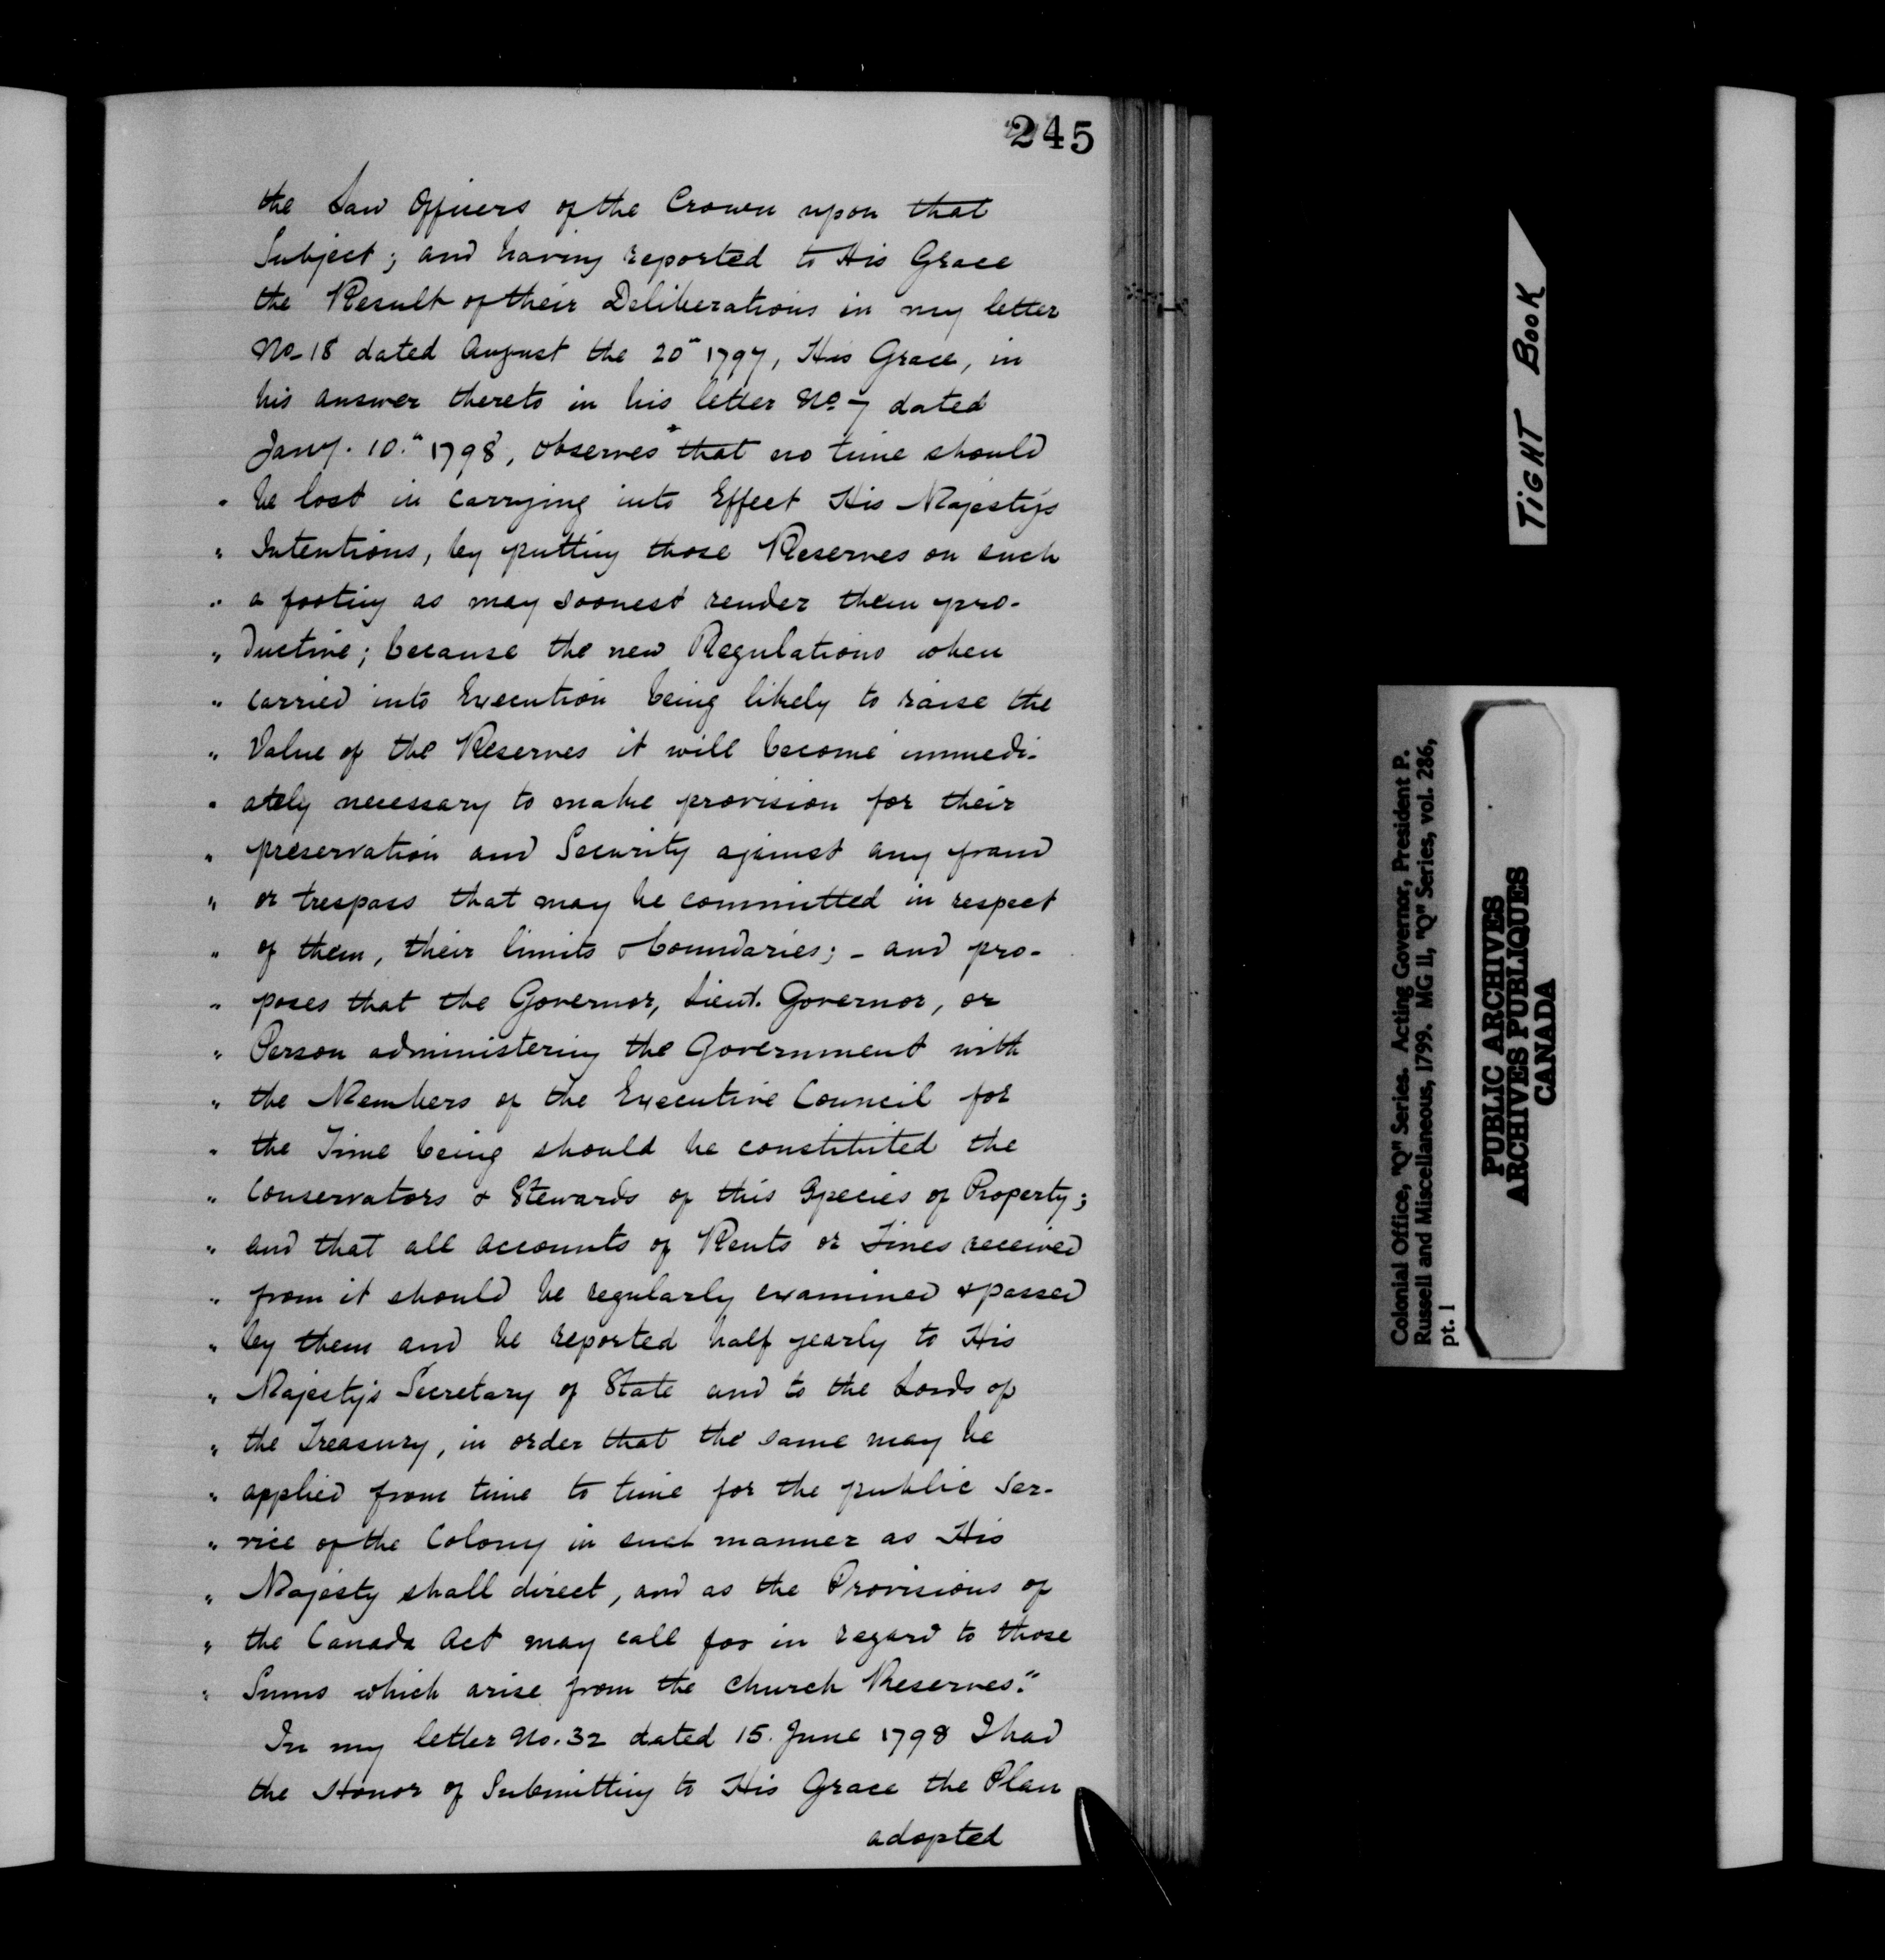 245
the Law Officers of the Crown upon that
Subject; and having reported to His Grace
the Result of their Deliberations in my letter
No. 18 dated August the 20" 1797, His Grace, in
his answer thereto in his letter No. 7 dated
Jany. 10." 1798, observes "that no time should
" be lost in carrying into Effect His Majesty's
" Intentions, by putting those Reserves on such
" a footing as may soonest render them pro-
" ductive; because the new Regulations when
" carried into Execution being likely to raise the
" Value of the Reserves it will become immedi-
" ately necessary to make provision for their
" preservation and Security against any fraud
" or trespass that may be committed in respect
" of them, their limits & boundaries; - and pro-
" poses that the Governor, Lieut. Governor, or
" Person administering the Government with
" the Members of the Executive Council for
" the Time being should be constituted the
" Conservators & Stewards of this Species of Property;
" and that all accounts of Rents or Fines received
" from it should be regularly examined & passed
" by them and be reported half yearly to His
" Majesty's Secretary of State and to the Lords of
" the Treasury, in order that the same may be
" applied from time to time for the public Ser-
" vice of the Colony in such manner as His
" Majesty shall direct, and as the Provisions of
" the Canada Act may call for in regard to those
" Sums which arise from the Church Reserves."
In my letter No. 32 dated 15. June 1798 I had
the Honor of Submitting to His Grace the Plan
adopted
TIGHT BOOK
Colonial Office, "Q" Series. Acting Governor, President P.
Russell and Miscellaneous, 1799. MG 11, "Q" Series, vol. 286,
pt. 1
PUBLIC ARCHIVES
ARCHIVES PUBLIQUES
CANADA